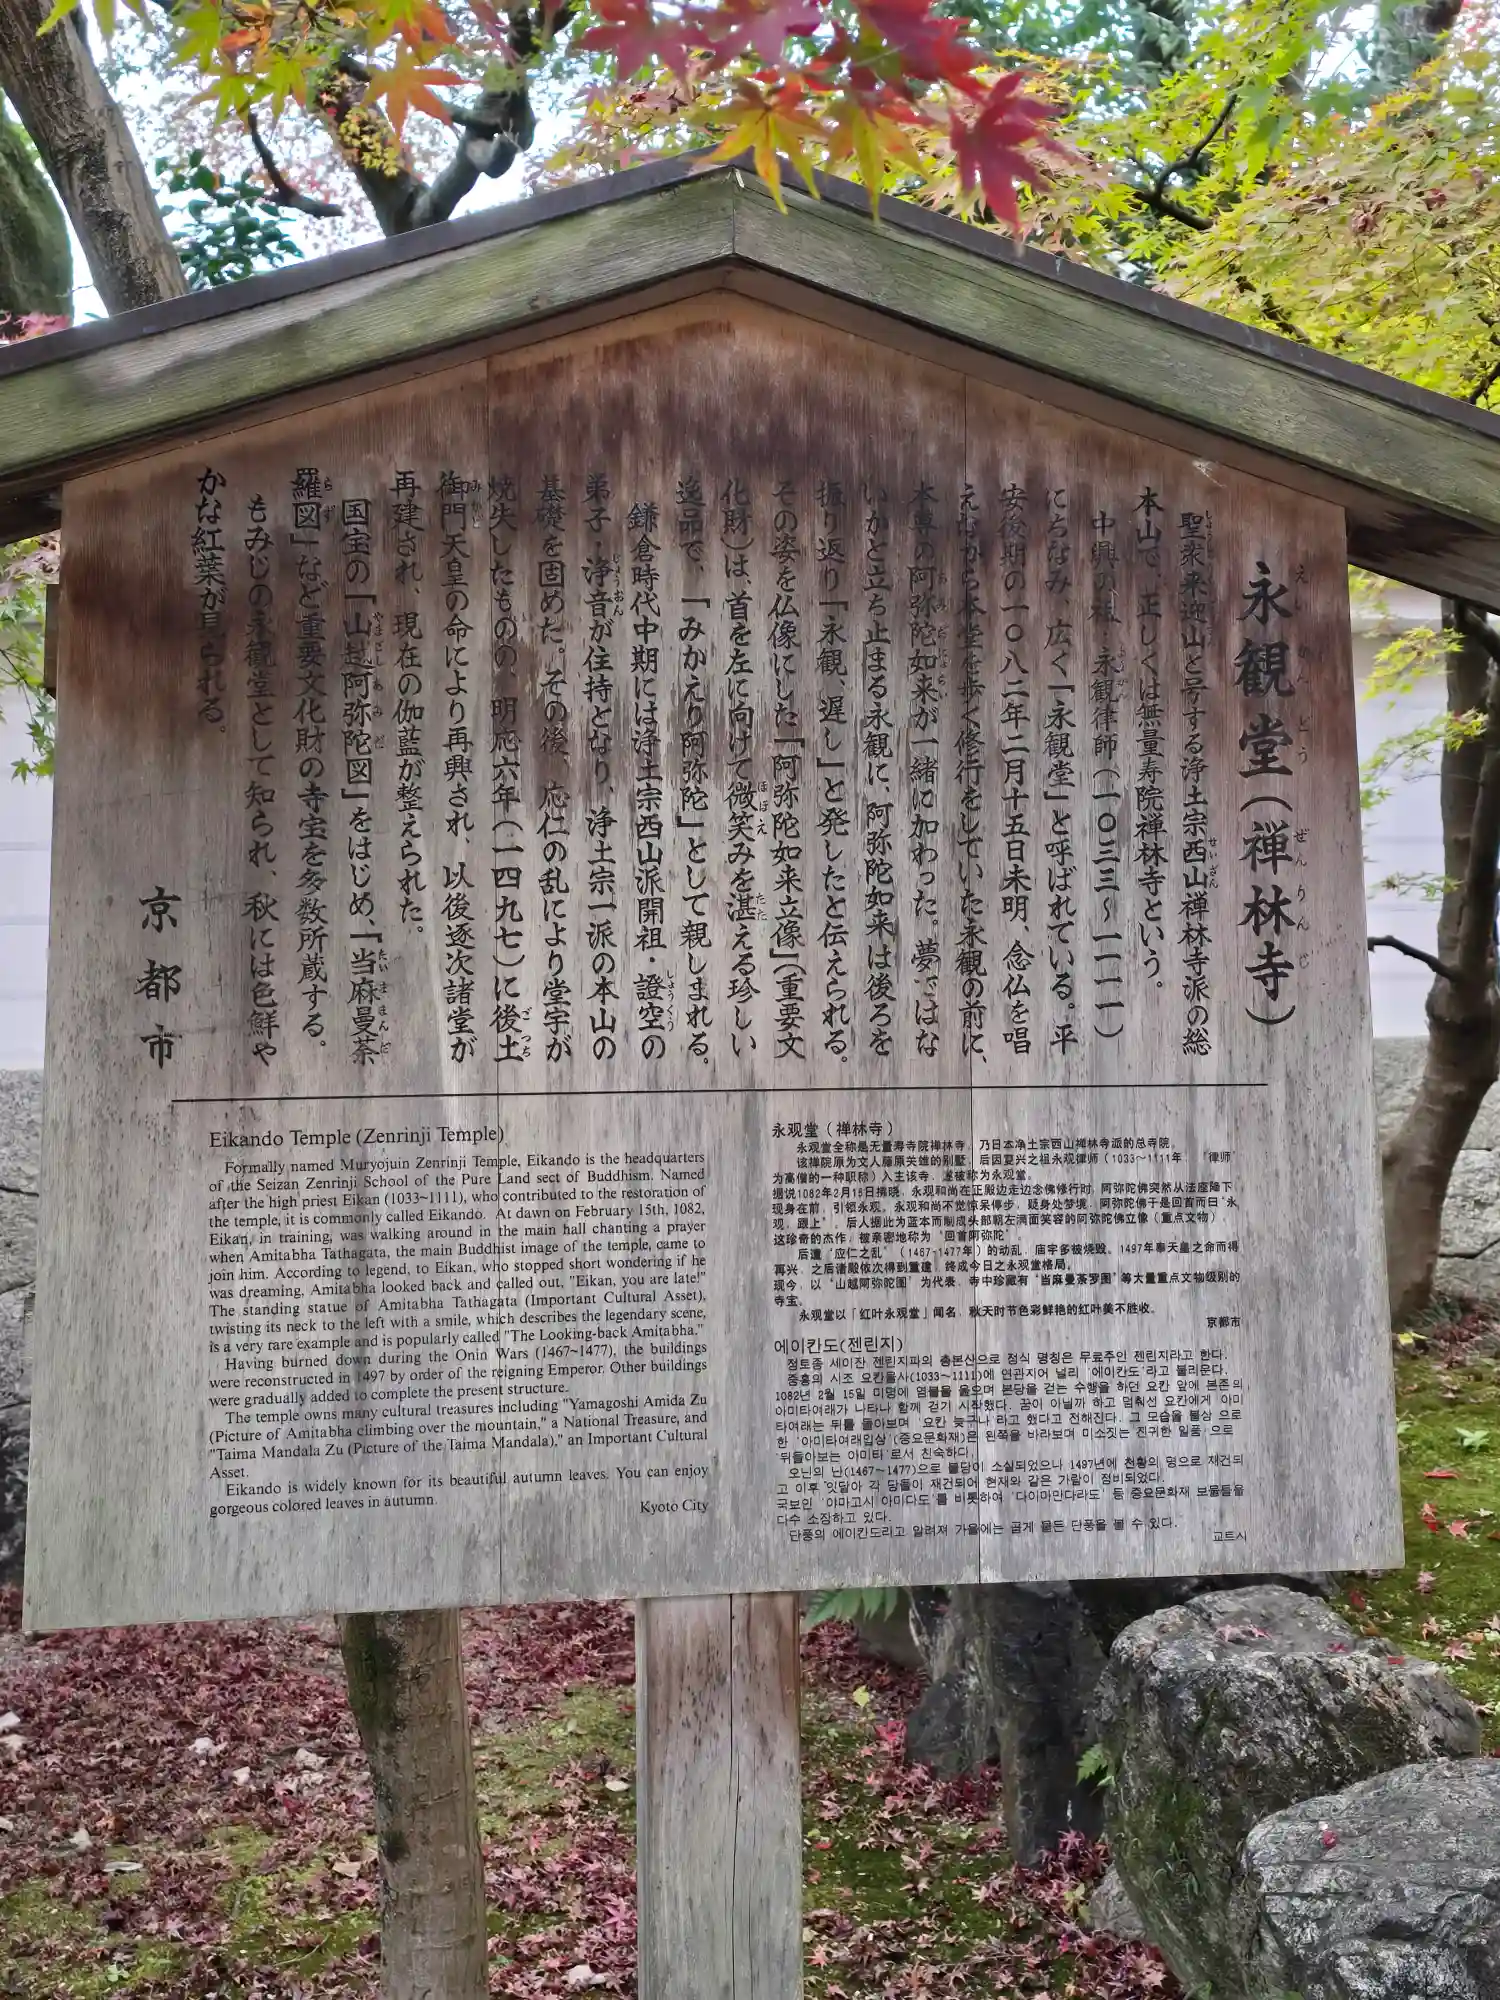 永観堂(禅林寺)
聖衆来迎山と号する浄土宗西山禅林寺派の総
本山で、正しくは無量寿院禅林寺という。
中興の祖・永観律師(一〇三三~一一一一)
にちなみ、広く「永観堂」と呼ばれている。平
安後期の一〇八二年二月十五日未明、念仏を唱
えながら本堂を歩く修行をしていた永観の前に、
本尊の阿弥陀如来が一緒に加わった。夢ではな
いかと立ち止まる永観に、阿弥陀如来は後ろを
振り返り「永観、遅し」と発したと伝えられる。
その姿を仏像にした「阿弥陀如来立像」(重要文
化財)は、首を左に向けて微笑みを湛える珍しい
逸品で、「みかえり阿弥陀」として親しまれる。
鎌倉時代中期には浄土宗西山派開祖・證空の
弟子・浄音が住持となり、浄土宗一派の本山の
基礎を固めた。その後、応仁の乱により堂宇が
焼失したものの、明応六年(一四九七)に後土
御門天皇の命により再興され、以後逐次諸堂が
再建され、現在の伽藍が整えられた。
国宝の「山越阿弥陀図」をはじめ、「当麻曼荼
羅図」など重要文化財の寺宝を多数所蔵する。
もみじの永観堂として知られ、秋には色鮮や
かな紅葉が見られる。
京都市
Eikando Temple (Zenrinji Temple)
Formally named Muryojuin Zenrinji Temple, Eikando is the headquarters
of the Seizan Zenrinji School of the Pure Land sect of Buddhism. Named
after the high priest Eikan (1033~1111), who contributed to the restoration of
the temple, it is commonly called Eikando. At dawn on February 15th, 1082,
Eikan, in training, was walking around in the main hall chanting a prayer
when Amitabha Tathagata, the main Buddhist image of the temple, came to
join him. According to legend, to Eikan, who stopped short wondering if he
was dreaming, Amitabha looked back and called out, "Eikan, you are late!"
The standing statue of Amitabha Tathagata (Important Cultural Asset),
twisting its neck to the left with a smile, which describes the legendary scene,
is a very rare example and is popularly called "The Looking-back Amitabha."
Having burned down during the Onin Wars (1467~1477), the buildings
were reconstructed in 1497 by order of the reigning Emperor. Other buildings
were gradually added to complete the present structure.
The temple owns many cultural treasures including "Yamagoshi Amida Zu
(Picture of Amitabha climbing over the mountain," a National Treasure, and
"Taima Mandala Zu (Picture of the Taima Mandala)," an Important Cultural
Asset.
Eikando is widely known for its beautiful autumn leaves. You can enjoy
gorgeous colored leaves in autumn.
Kyoto City
永观堂(禅林寺)
永观堂全称是无量寿寺院禅林寺,乃日本净土宗西山禅林寺派的总寺院。
该禅院原为文人藤原关雄的别墅,后因复兴之祖永观律师(1033~1111年,"律师"
为高僧的一种职称)入主该寺,遂被称为永观堂。
据说1082年2月15日拂晓,永观和尚在正殿边走边念佛修行时,阿弥陀佛突然从法座降下,
现身在前,引领永观。永观和尚不觉惊呆停步,疑身处梦境,阿弥陀佛于是回首而曰"永
观,跟上"。后人据此为蓝本而制成头部朝左满面笑容的阿弥陀佛立像(重点文物),
这珍奇的杰作,被亲密地称为"回首阿弥陀"。
后遭"应仁之乱"(1467-1477年)的动乱,庙宇多被烧毁。1497年奉天皇之命而得
再兴,之后诸殿依次得到重建,终成今日之永观堂格局。
现今,以"山越阿弥陀图"为代表,寺中珍藏有"当麻曼荼罗图"等大量重点文物级别的
寺宝。
永观堂以「红叶永观堂」闻名,秋天时节色彩鲜艳的红叶美不胜收。
京都市
에이칸도(젠린지)
정토종 세이잔 젠린지파의 총본산으로 정식 명칭은 무료주인 젠린지라고 한다.
중흥의 시조 요칸율사(1033~1111)에 연관지어 널리 '에이칸도'라고 불리운다.
1082년 2월 15일 미명에 염불을 읊으며 본당을 걷는 수행을 하던 요칸 앞에 본존의
아미타여래가 나타나 함께 걷기 시작했다. 꿈이 아닐까 하고 멈춰선 요칸에게 아미
타여래는 뒤를 돌아보며 '요칸 늦구나'라고 했다고 전해진다. 그 모습을 불상 으로
한 '아미타여래입상'(중요문화재)은 왼쪽을 바라보며 미소짓는 진귀한 일품 으로
'뒤돌아보는 아미타'로서 친숙하다.
오닌의 난(1467~1477)으로 불당이 소실되었으나 1497년에 천황의 명으로 재건되
고 이후 잇달아 각 당들이 재건되어 현재와 같은 가람이 정비되었다.
국보인 '야마고시 아미다도'를 비롯하여 '다이마만다라도' 등 중요문화재 보물들을
다수 소장하고 있다.
단풍의 에이칸도라고 알려져 가을에는 곱게 물든 단풍을 볼 수 있다.
교토시